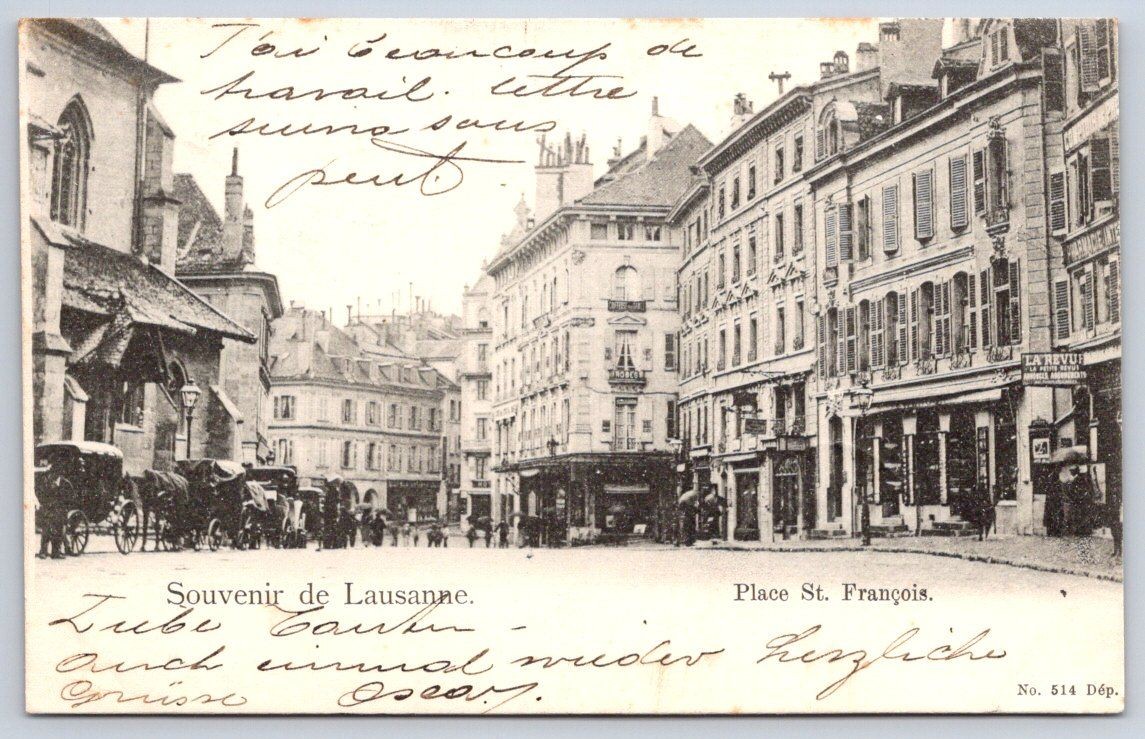 J'ai beaucoup de
travail. lettre
suivra sous
peu.
LA REVUE
ROBES
Souvenir de Lausanne.
Place St. François.
Liebe Tante -
Auch einmal wieder herzliche
Grüsse Oscar.
No. 514 Dép.